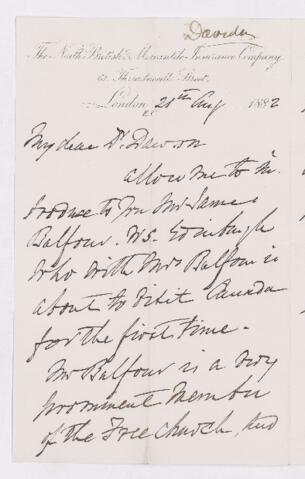 Davidson
The North British & Mercantile Insurance Company
61, Threadneedle Street,
London 21th Aug 1882
E.C.
My dear Dr Dawson
allow me to in-
troduce to you Mr James
Balfour. W.S. Edinburgh
who with Mrs Balfour is
about to visit Canada
for the first time -
Mr Balfour is a very
prominent Member
of the Free church, and